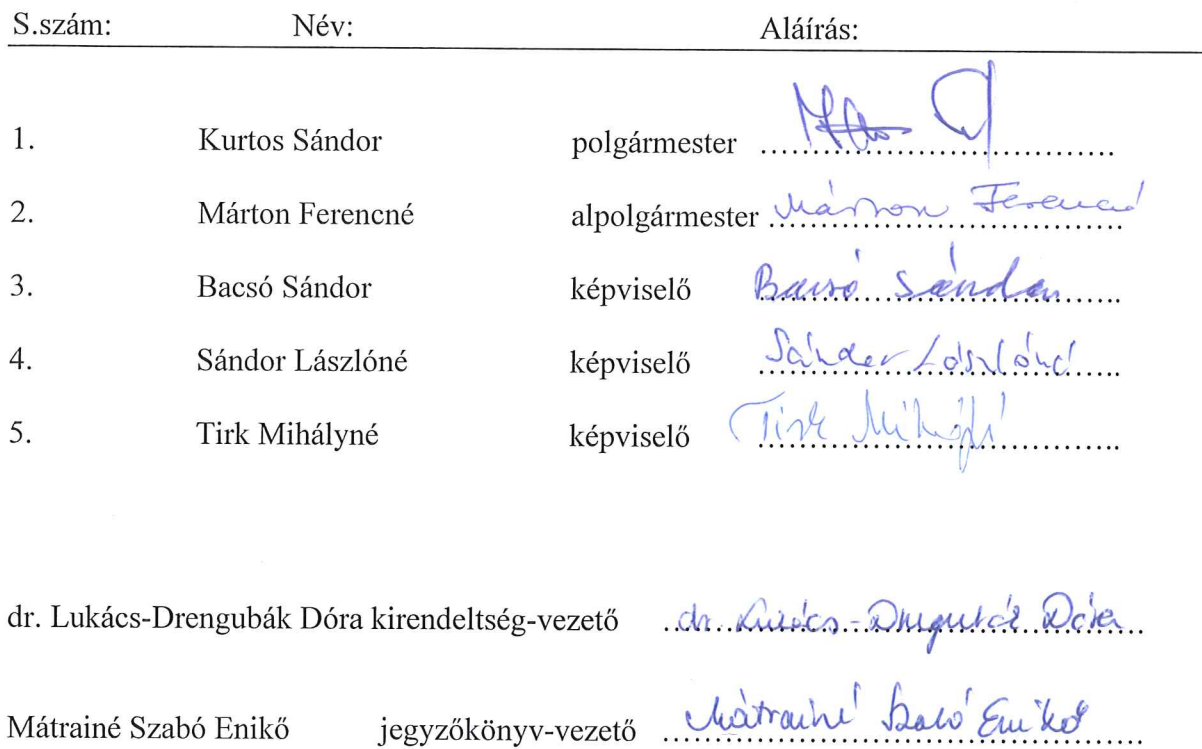 S.szám: Név: Aláírás:
1. Kurtos Sándor polgármester ....................................
2. Márton Ferencné alpolgármester Márton Ferencné
3. Bacsó Sándor képviselő Bacsó Sándor
4. Sándor Lászlóné képviselő Sándor Lászlóné
5. Tirk Mihályné képviselő Tirk Mihályné
dr. Lukács-Drengubák Dóra kirendeltség-vezető dr. Lukács-Drengubák Dóra
Mátrainé Szabó Enikő jegyzőkönyv-vezető Mátrainé Szabó Enikő